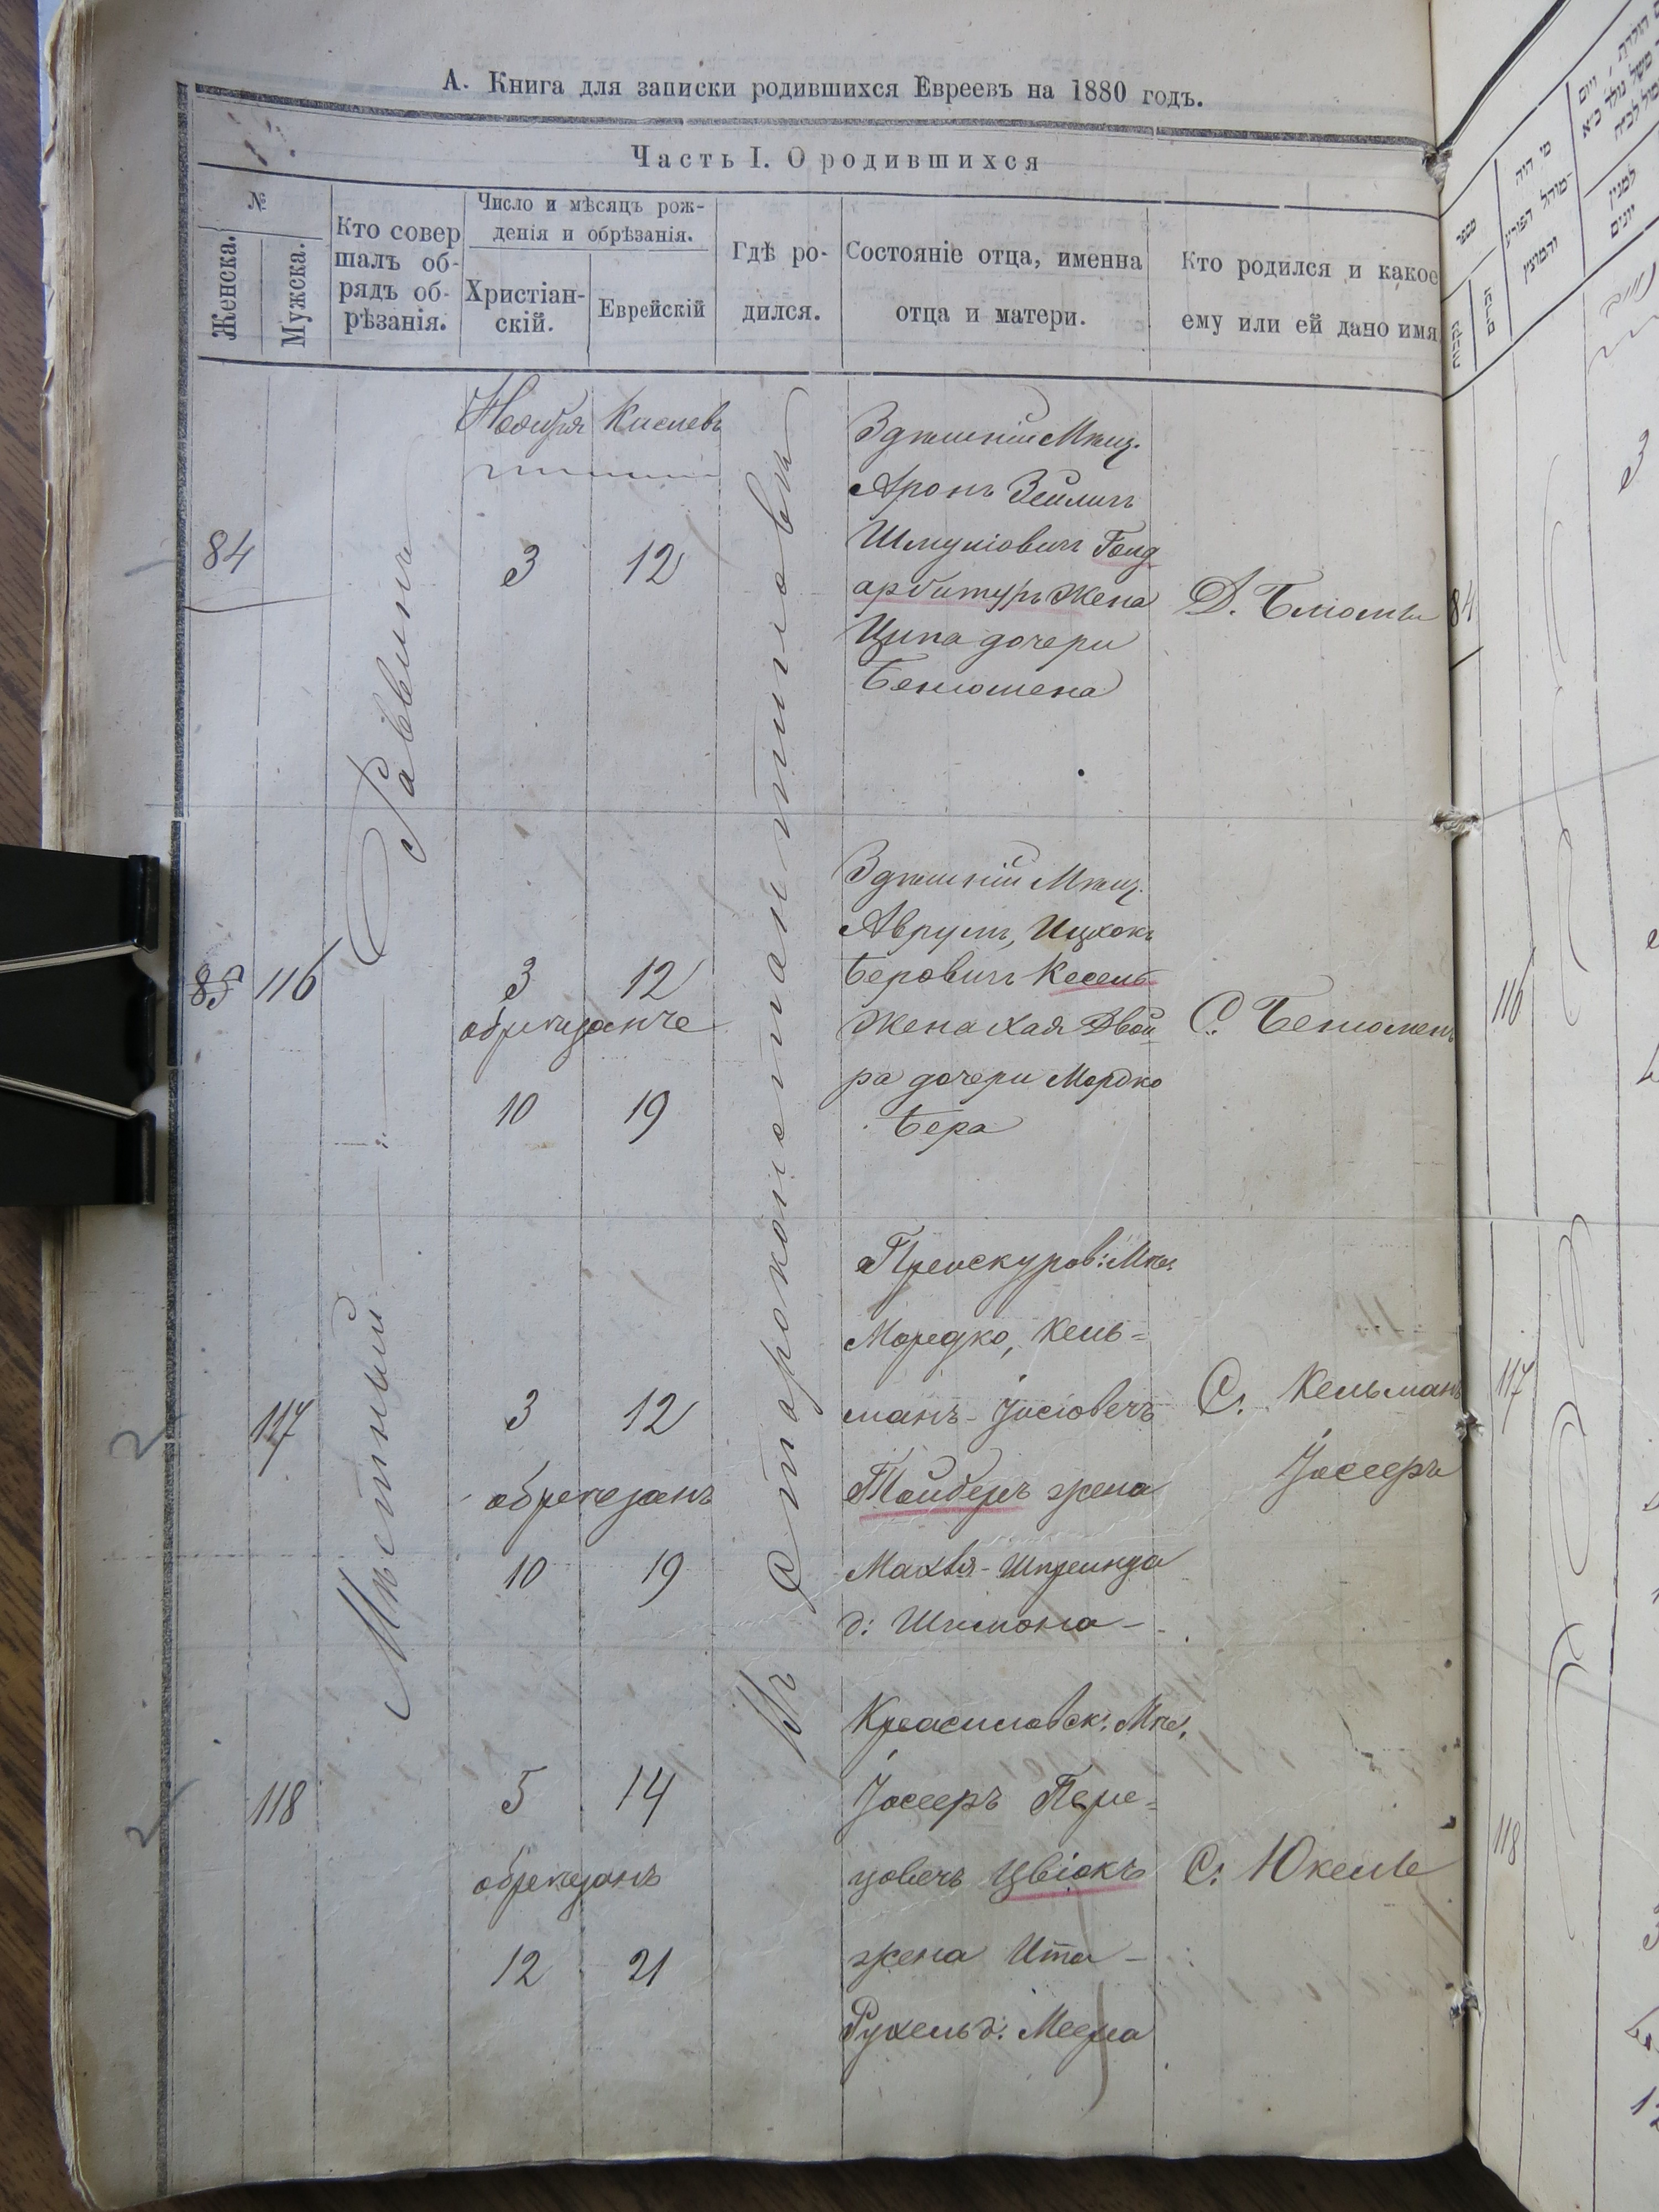 А. Книга для записки родившихся Евреевъ на 1880 годъ.
Часть I. О родившихся
№
Женска.
Мужска.
Кто совер
шалъ об-
рядъ об-
рѣзанія.
Число и мѣсяцъ рож-
денія и обрѣзанія.
Христіан-
скій.
Еврейскій
Гдѣ ро-
дился.
Состояніе отца, именна
отца и матери.
Кто родился и какое
ему или ей дано имя
Мѣстный Раввинъ
Въ Староконстантиновѣ
Ноября Кислевъ
84
3 12
Здѣшній Мѣщ.
Аронъ Зейликъ
Шмуліовичъ Голд
арбитуръ жена
Ципа дочери
Беньомена
Д. Блюма
85 116
3 12
обрѣзание
10 19
Здѣшній Мѣщ.
Аврумъ, Ицхокъ
Беровичъ Кесель
жена Хая Двой
ра дочери Мордко
Бера
С. Беньоменъ
117
3 12
обрѣзанъ
10 19
Проскуров: Мѣщ
Мордко, Кель=
манъ-Іосіовечъ
Тойберъ жена
Махля-Шпреинца
д: Шимона-
С. Кельманъ
Іосееръ
118
5 14
обрѣзанъ
12 21
Красиловск: Мѣщ.
Іосееръ Пере=
цовечъ Цвіокъ
жена Ита-
Рухель д: Меера
С. Юкель
84
116
117
118